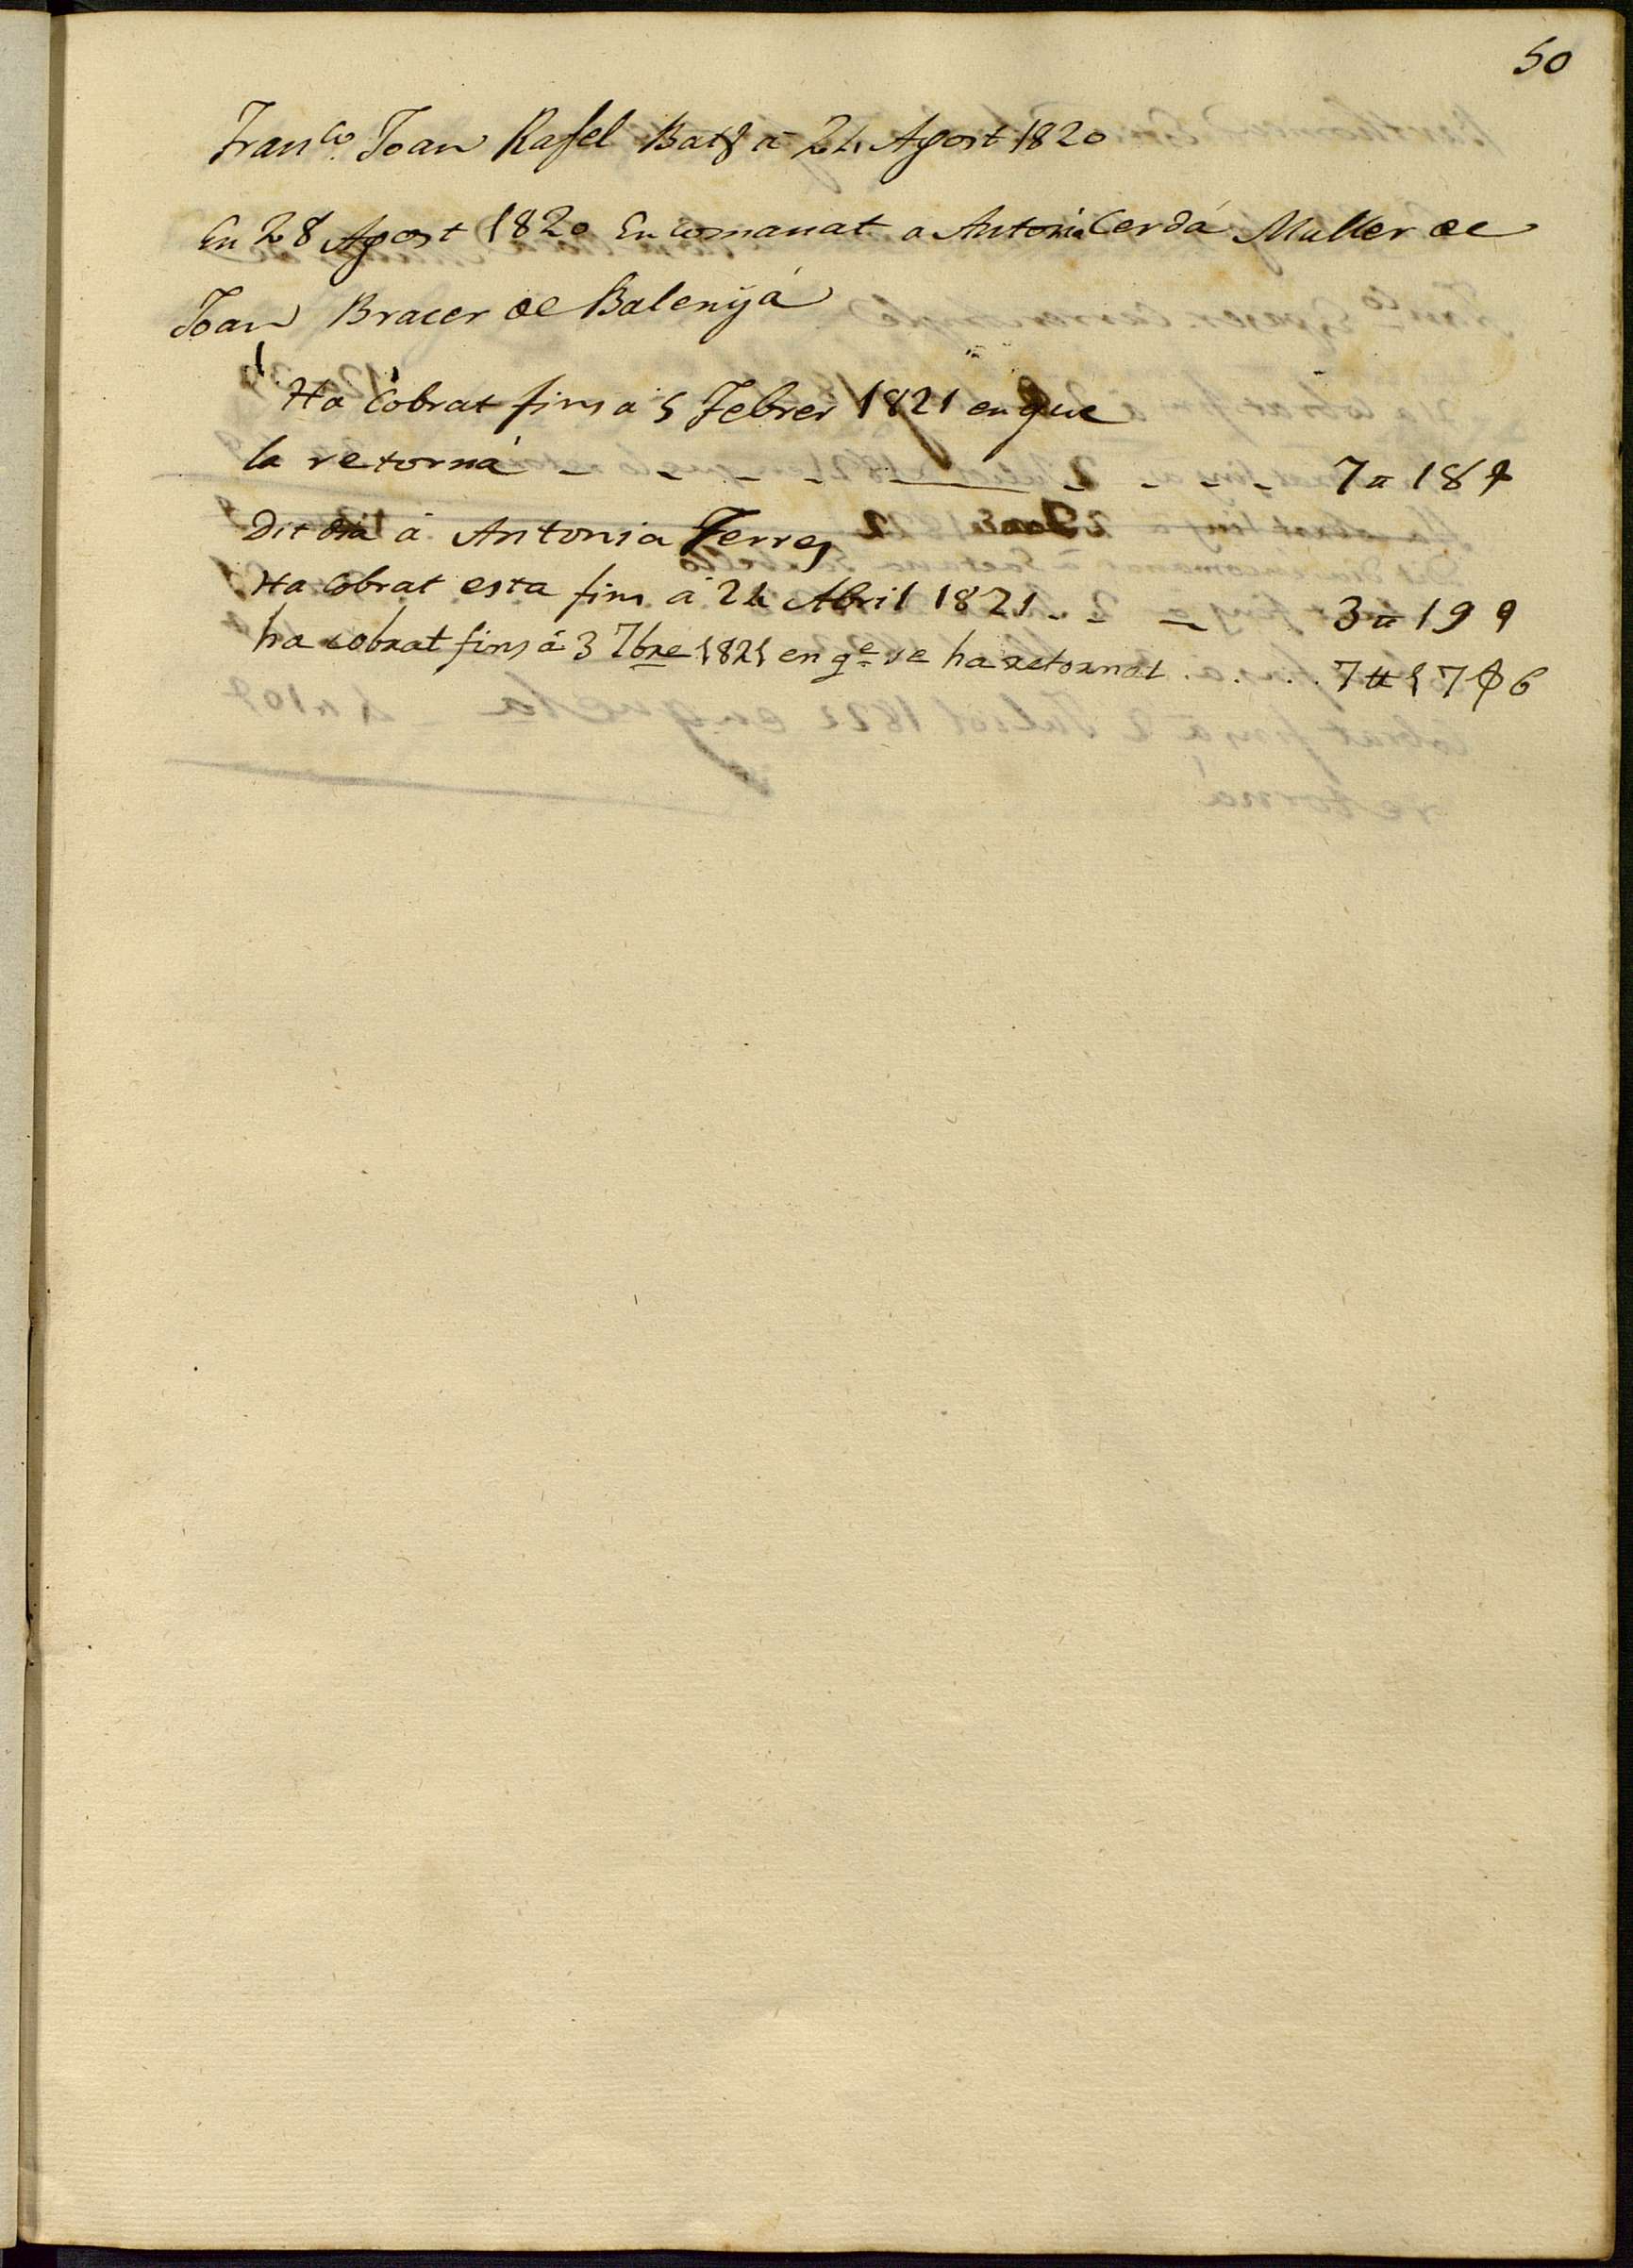 50
Fran.co Joan Rafel Batt a 24 Agost 1820
En 28 Agost 1820 En Comanat a Antonia Cerdá Muller de
Joan Bracer de Balenyá
Ha Cobrat fins a 5 Febrer 1821 en que
la retorná - - - - - - - - - 7 ll 18 ș
Dit dia á Antonia Ferres
Ha Cobrat esta fins á 24 Abril 1821 - - - 3 ll 19 ș
ha cobrat fins á 3 7bre 1821 en qe se ha retornat . . . . 7 ll 17 ș 6